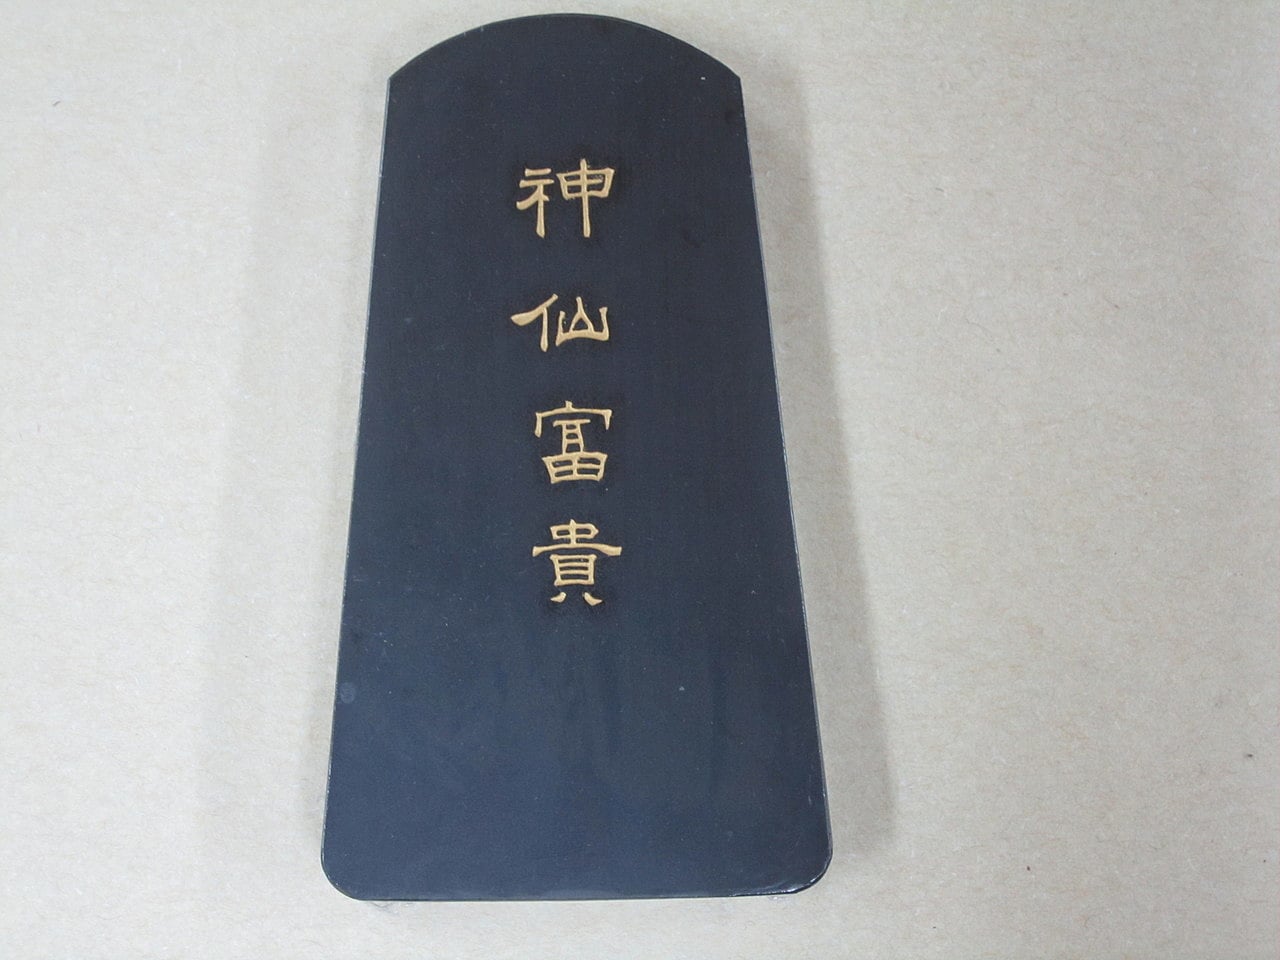 神仙富貴